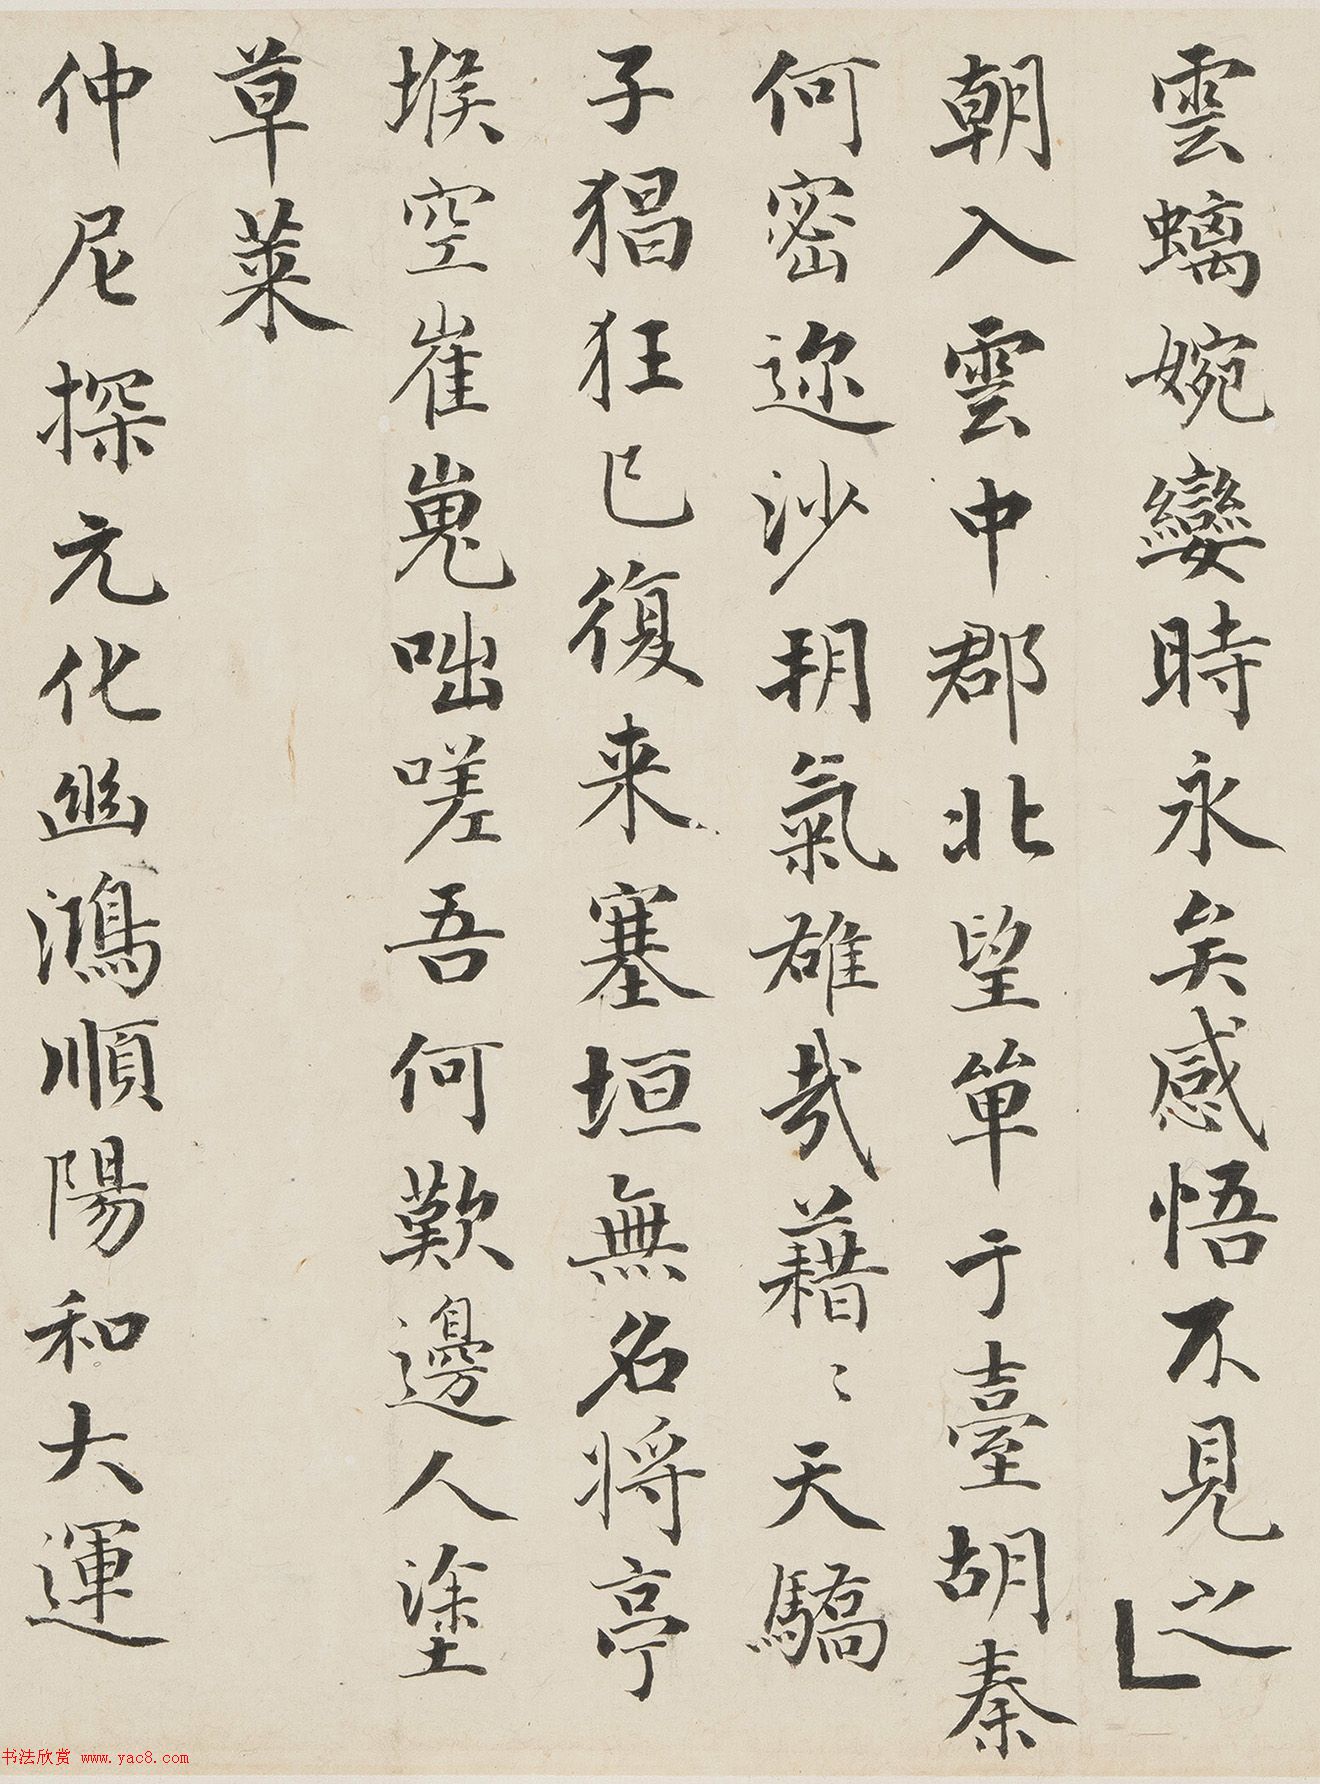 雲螭婉孌時永矣感悟不見之
朝入雲中郡北望單于臺胡秦
何密迩沙朔氣雄哉藉〻天驕
子猖狂已復来塞垣無名将亭
堠空崔嵬咄嗟吾何歎邊人塗
草菜
仲尼探元化幽鴻順陽和大運
书法欣赏 www.yac8.com